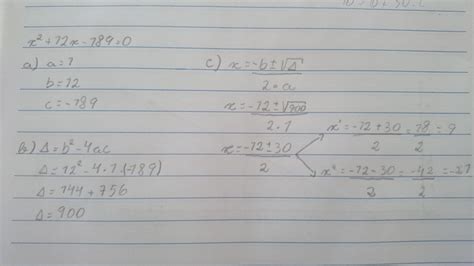 x² + 12x - 189 = 0
a) a = 1
b = 12
c = -189
b) Δ = b² - 4ac
Δ = 12² - 4 · 1 · (-189)
Δ = 144 + 756
Δ = 900
c) x = -b ± √Δ
2 · a
x = -12 ± √900
2 · 1
x = -12 ± 30
2
x' = -12 + 30 = 18 = 9
2 2
x" = -12 - 30 = -42 = -21
2 2